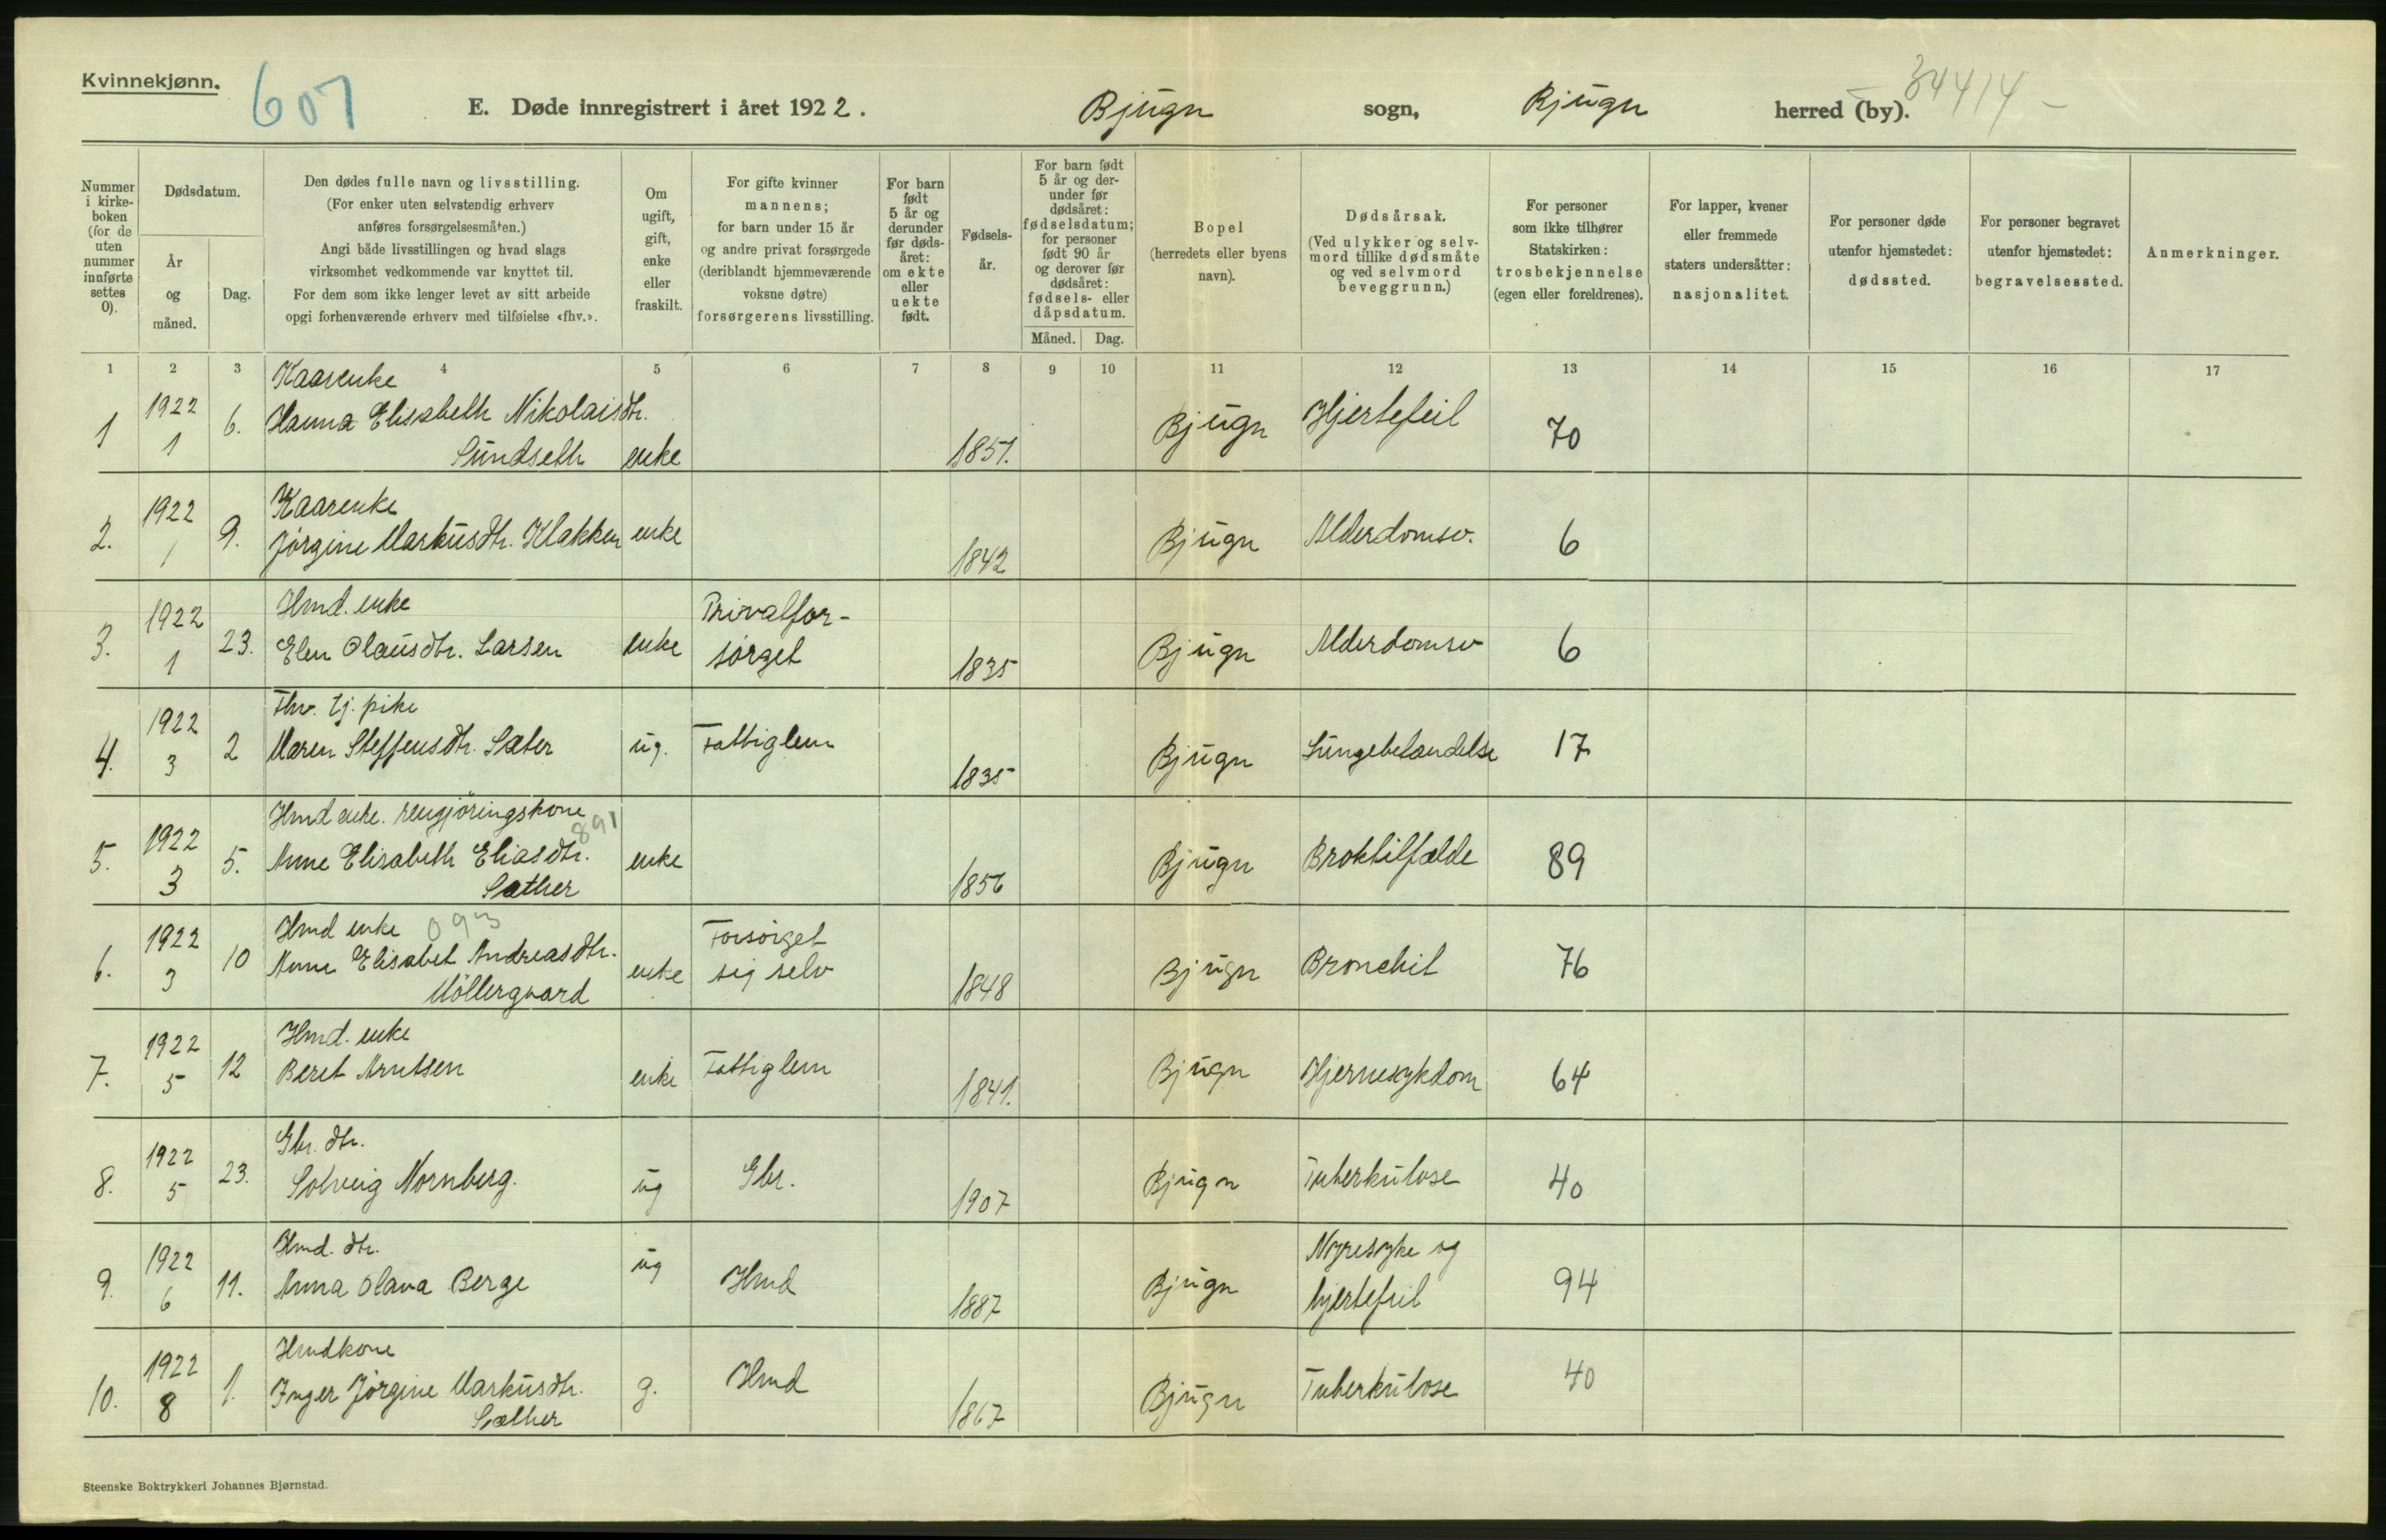 Kvinnekjønn.
607
E. Døde innregistrert i året 1922. Bjugn sogn, Bjugn herred (by). 34414
Nummer i kirkeboken (for de uten nummer innførte settes 0).
Dødsdatum.
År og måned.
Dag.
Den dødes fulle navn og livsstilling.
(For enker uten selvstendig erhverv
anføres forsørgelsesmåten.)
Angi både livsstillingen og hvad slags
virksomhet vedkommende var knyttet til.
For dem som ikke lenger levet av sitt arbeide
opgi forhenværende erhverv med tilføielse «fhv.».
Om
ugift,
gift,
enke
eller
fraskilt.
For gifte kvinner
mannens;
for barn under 15 år
og andre privat forsørgede
(deriblandt hjemmeværende
voksne døtre)
forsørgerens livsstilling.
For barn
født
5 år og
derunder
før døds-
året:
om ekte
eller
uekte
født.
Fødsels-
år.
For barn født
5 år og der-
under før
dødsåret:
fødselsdatum;
for personer
født 90 år
og derover før
dødsåret:
fødsels- eller
dåpsdatum.
Måned. Dag.
Bopel
(herredets eller byens
navn).
Dødsårsak.
(Ved ulykker og selv-
mord tillike dødsmåte
og ved selvmord
beveggrunn.)
For personer
som ikke tilhører
Statskirken:
trosbekjennelse
(egen eller foreldrenes).
For lapper, kvener
eller fremmede
staters undersåtter:
nasjonalitet.
For personer døde
utenfor hjemstedet:
dødssted.
For personer begravet
utenfor hjemstedet:
begravelsessted.
Anmerkninger.
1 2 3 4 5 6 7 8 9 10 11 12 13 14 15 16 17
Kaarenke
1 1922 1 6. Hanna Elisabeth Nikolaisdtr.
Sundseth enke 1851. Bjugn Hjertefeil 70
Kaarenke
2. 1922 1 9. Jørgine Markusdtr. Klakken enke 1842 Bjugn Alderdomsv. 6
Hmd. enke
3. 1922 1 23. Elen Olausdtr. Larsen enke Privatfor-
sørget 1835 Bjugn Alderdomsv 6
Fhv. tj. pike
4. 1922 3 2 Maren Steffensdtr. Sæter ug. Fattiglem 1835 Bjugn Lungebetændelse 17
Hmd enke. rengjøringskone
891
5. 1922 3 5. Anne Elisabeth Eliasdtr.
Sæther enke 1856 Bjugn Broktilfælde 89
Hmd enke 093
6. 1922 3 10 Anne Elisabet Andreasdtr.
Möllergaard enke Forsørget
sig selv 1848 Bjugn Bronchit 76
Hmd. enke
7. 1922 5 12 Beret Arntsen enke Fattiglem 1841. Bjugn Hjernesykdom 64
Gbr. dtr.
8. 1922 5 23. Solveig Nornberg. ug Gbr. 1907 Bjugn Tuberkulose 40
Hmd. dtr.
9. 1922 6 11. Anna Olava Berge ug Hmd 1887 Bjugn Nyresyke og
hjertefeil 94
Hmdkone
10. 1922 8 1. Inger Jørgine Markusdtr.
Sæther g. Hmd 1867 Bjugn Tuberkulose 40
Steenske Boktrykkeri Johannes Bjørnstad.